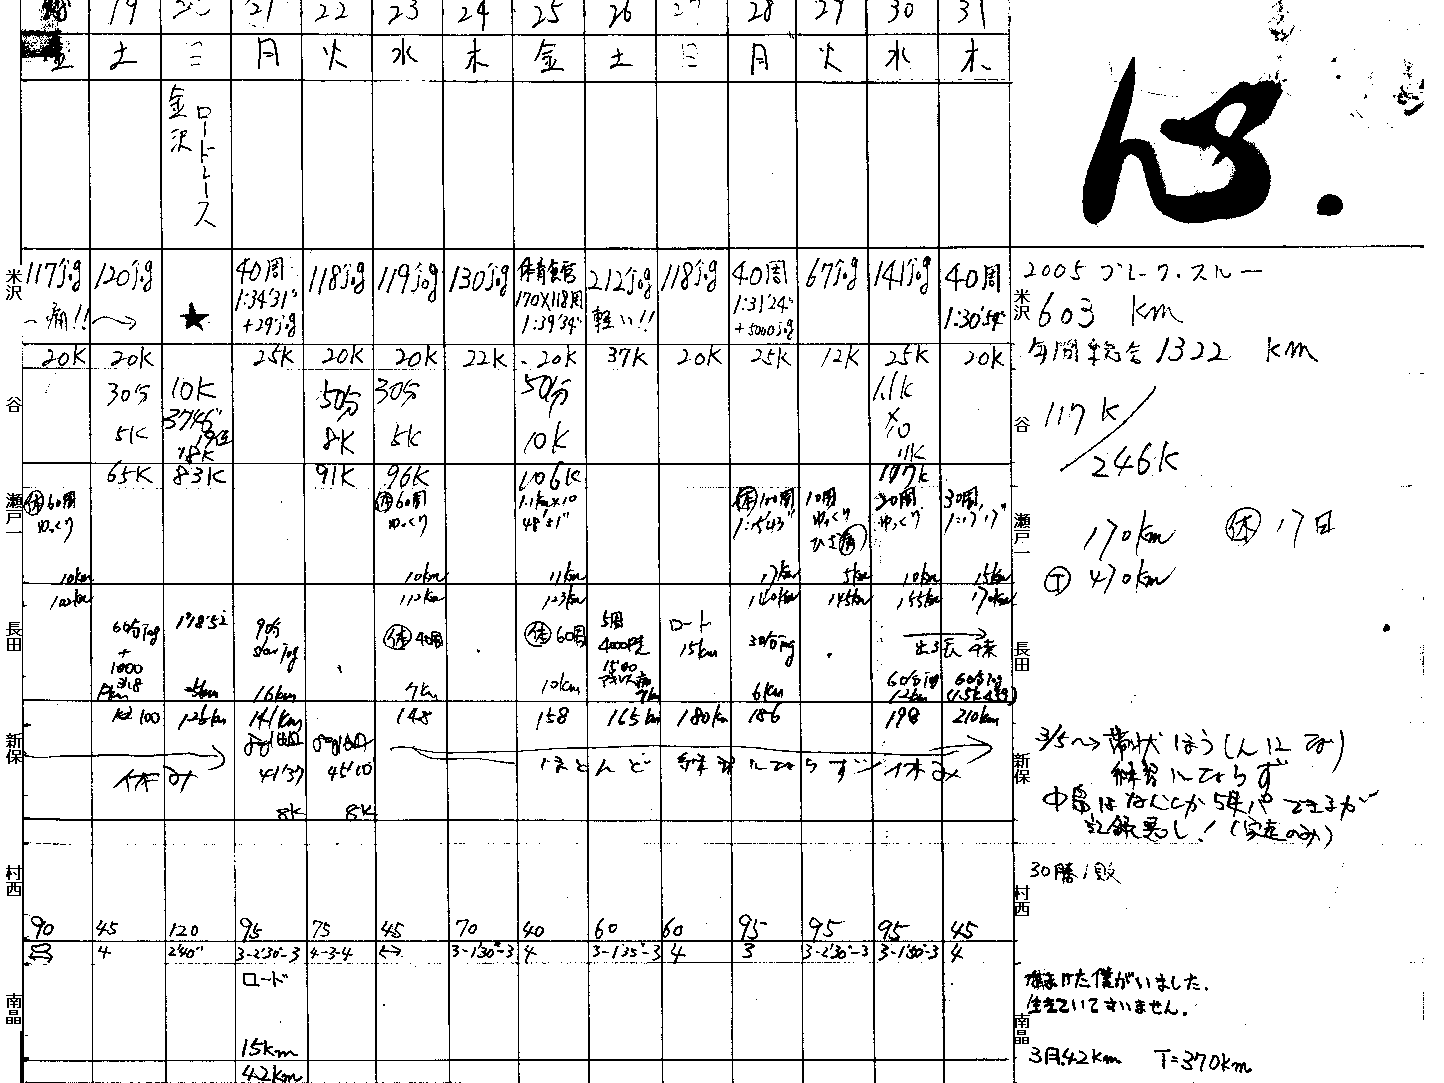 19 20 21 22 23 24 25 26 27 28 29 30 31
金 土 日 月 火 水 木 金 土 日 月 火 水 木
金沢
ロードレース
心.
米沢
117jog 120jog 40周 118jog 119jog 130jog 体育館 212jog 118jog 40周 67jog 141jog 40周
1:34'31" 170×118周 1:31'24"
痛!! ★ +29'jog 1:39'34" 軽い!! +5000jog 1:30'54"
20K 20K 25K 20K 20K 22K 20K 37K 20K 25K 12K 25K 20K
米沢
2005 ブレークスルー
603 km
年間総合 1322 km
谷
30分 10K 50分 30分 50分 1.1K
37'46" ×
5K 19位 8K 5K 10K 10
18K 11K
65K 83K 91K 96K 106K 117K
谷
117K
246K
瀬戸一
休 60周 休 60周 1.1km×10 休 100周 10周 20周 30周
ゆっくり ゆっくり 48'51" 1:15'43" ゆっくり ゆっくり 1:17'17"
ひざ痛
10km 10km 11km 17km 5km 10km 15km
102km 112km 123km 140km 145km 155km 170km
瀬戸一
170km 休 17日
T 470km
長田
60分jog 1°18'52 90分 休 40周 休 60周 5周 ロード 30分jog
+ slow jog 15km
1000
60分jog 60分jog
16km 7km 10km 7km 6km 12km
126km 141km 148 158 165km 180km 186 198 210km
長田
新保
休み
41'37 45'10
8K 8K
ほとんど 練習にならず 休み
新保
3/5~ 帯状ほうしんになり
練習にならず
記録悪し!
村西
90 45 120 95 75 45 70 40 60 60 95 95 95 45
村西
30勝1敗
南晶
4 2'40" 3-2'30"-3 4-3-4 3-1'30"-3 4 3-1'35"-3 4 3 3-2'30"-3 3-1'30"-3 4
ロード
15km
42km
南晶
僕がいました.
生きていてすいません.
3月42km T=370km